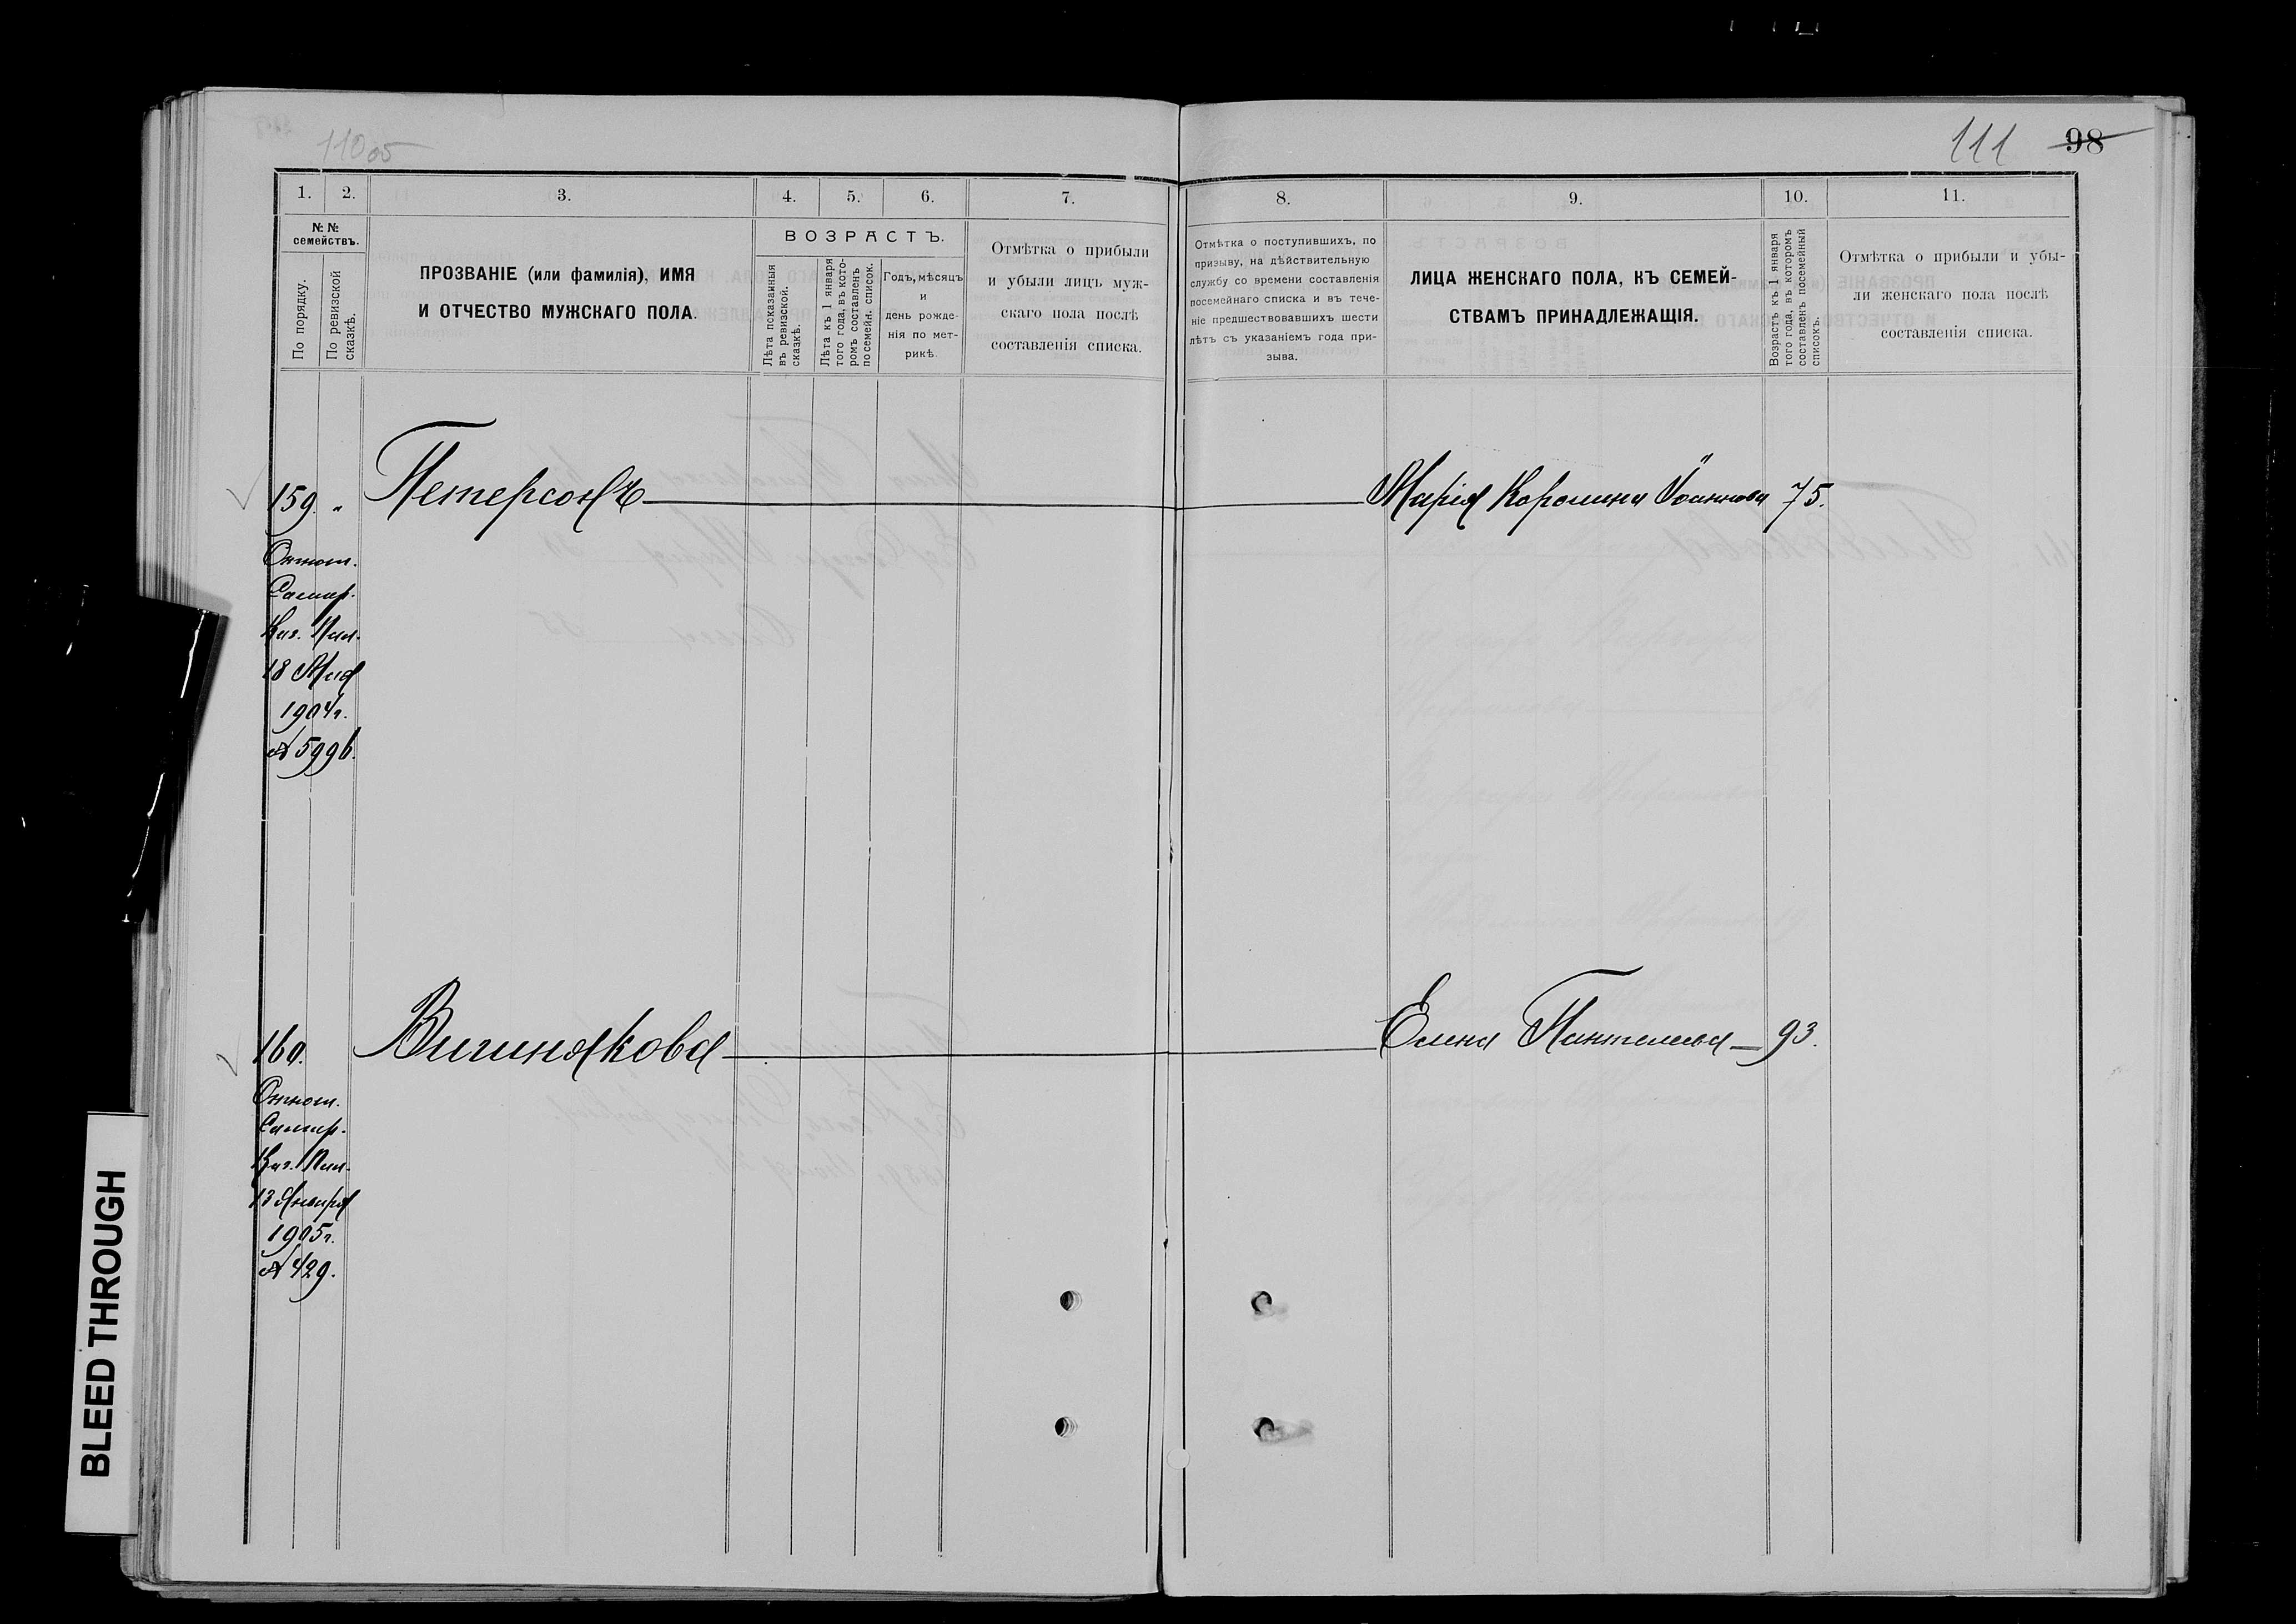 110 об
111 98
1. 2. 3. 4. 5. 6. 7. 8. 9. 10. 11.
№ №
семействъ.
По порядку.
По ревизской
сказкѣ.
ПРОЗВАНІЕ (или фамилія), ИМЯ
И ОТЧЕСТВО МУЖСКАГО ПОЛА.
ВОЗРАСТЪ.
Лѣта показанныя
въ ревизской.
сказкѣ.
Лѣта къ 1 января
того года, въ кото-
ромъ составленъ
посемейн. список.
Годъ, мѣсяцъ
и
день рожде-
нія по мет-
рикѣ.
Отмѣтка о прибыли
и убыли лицъ муж-
скаго пола послѣ
составленія списка.
Отмѣтка о поступившихъ, по
призыву, на дѣйствительную
службу со времени составленія
посемейнаго списка и въ тече-
ніе предшествовавшихъ шести
лѣтъ съ указаніемъ года при-
зыва.
ЛИЦА ЖЕНСКАГО ПОЛА, КЪ СЕМЕЙ-
СТВАМЪ ПРИНАДЛЕЖАЩІЯ.
Возрастъ къ 1 января
того года, въ которомъ
составленъ посемейный
списокъ.
Отмѣтка о прибыли и убы-
ли женскаго пола послѣ
составленія списка.
159. " Петерсонъ Марія Каролина Іоаннова 75.
Самар.
Каз. Пал.
18 Мая
1904 г.
№ 5996.
160. Елена 93.
Самар.
Каз. Пал.
13 Января
1905 г.
№ 429.
BLEED THROUGH